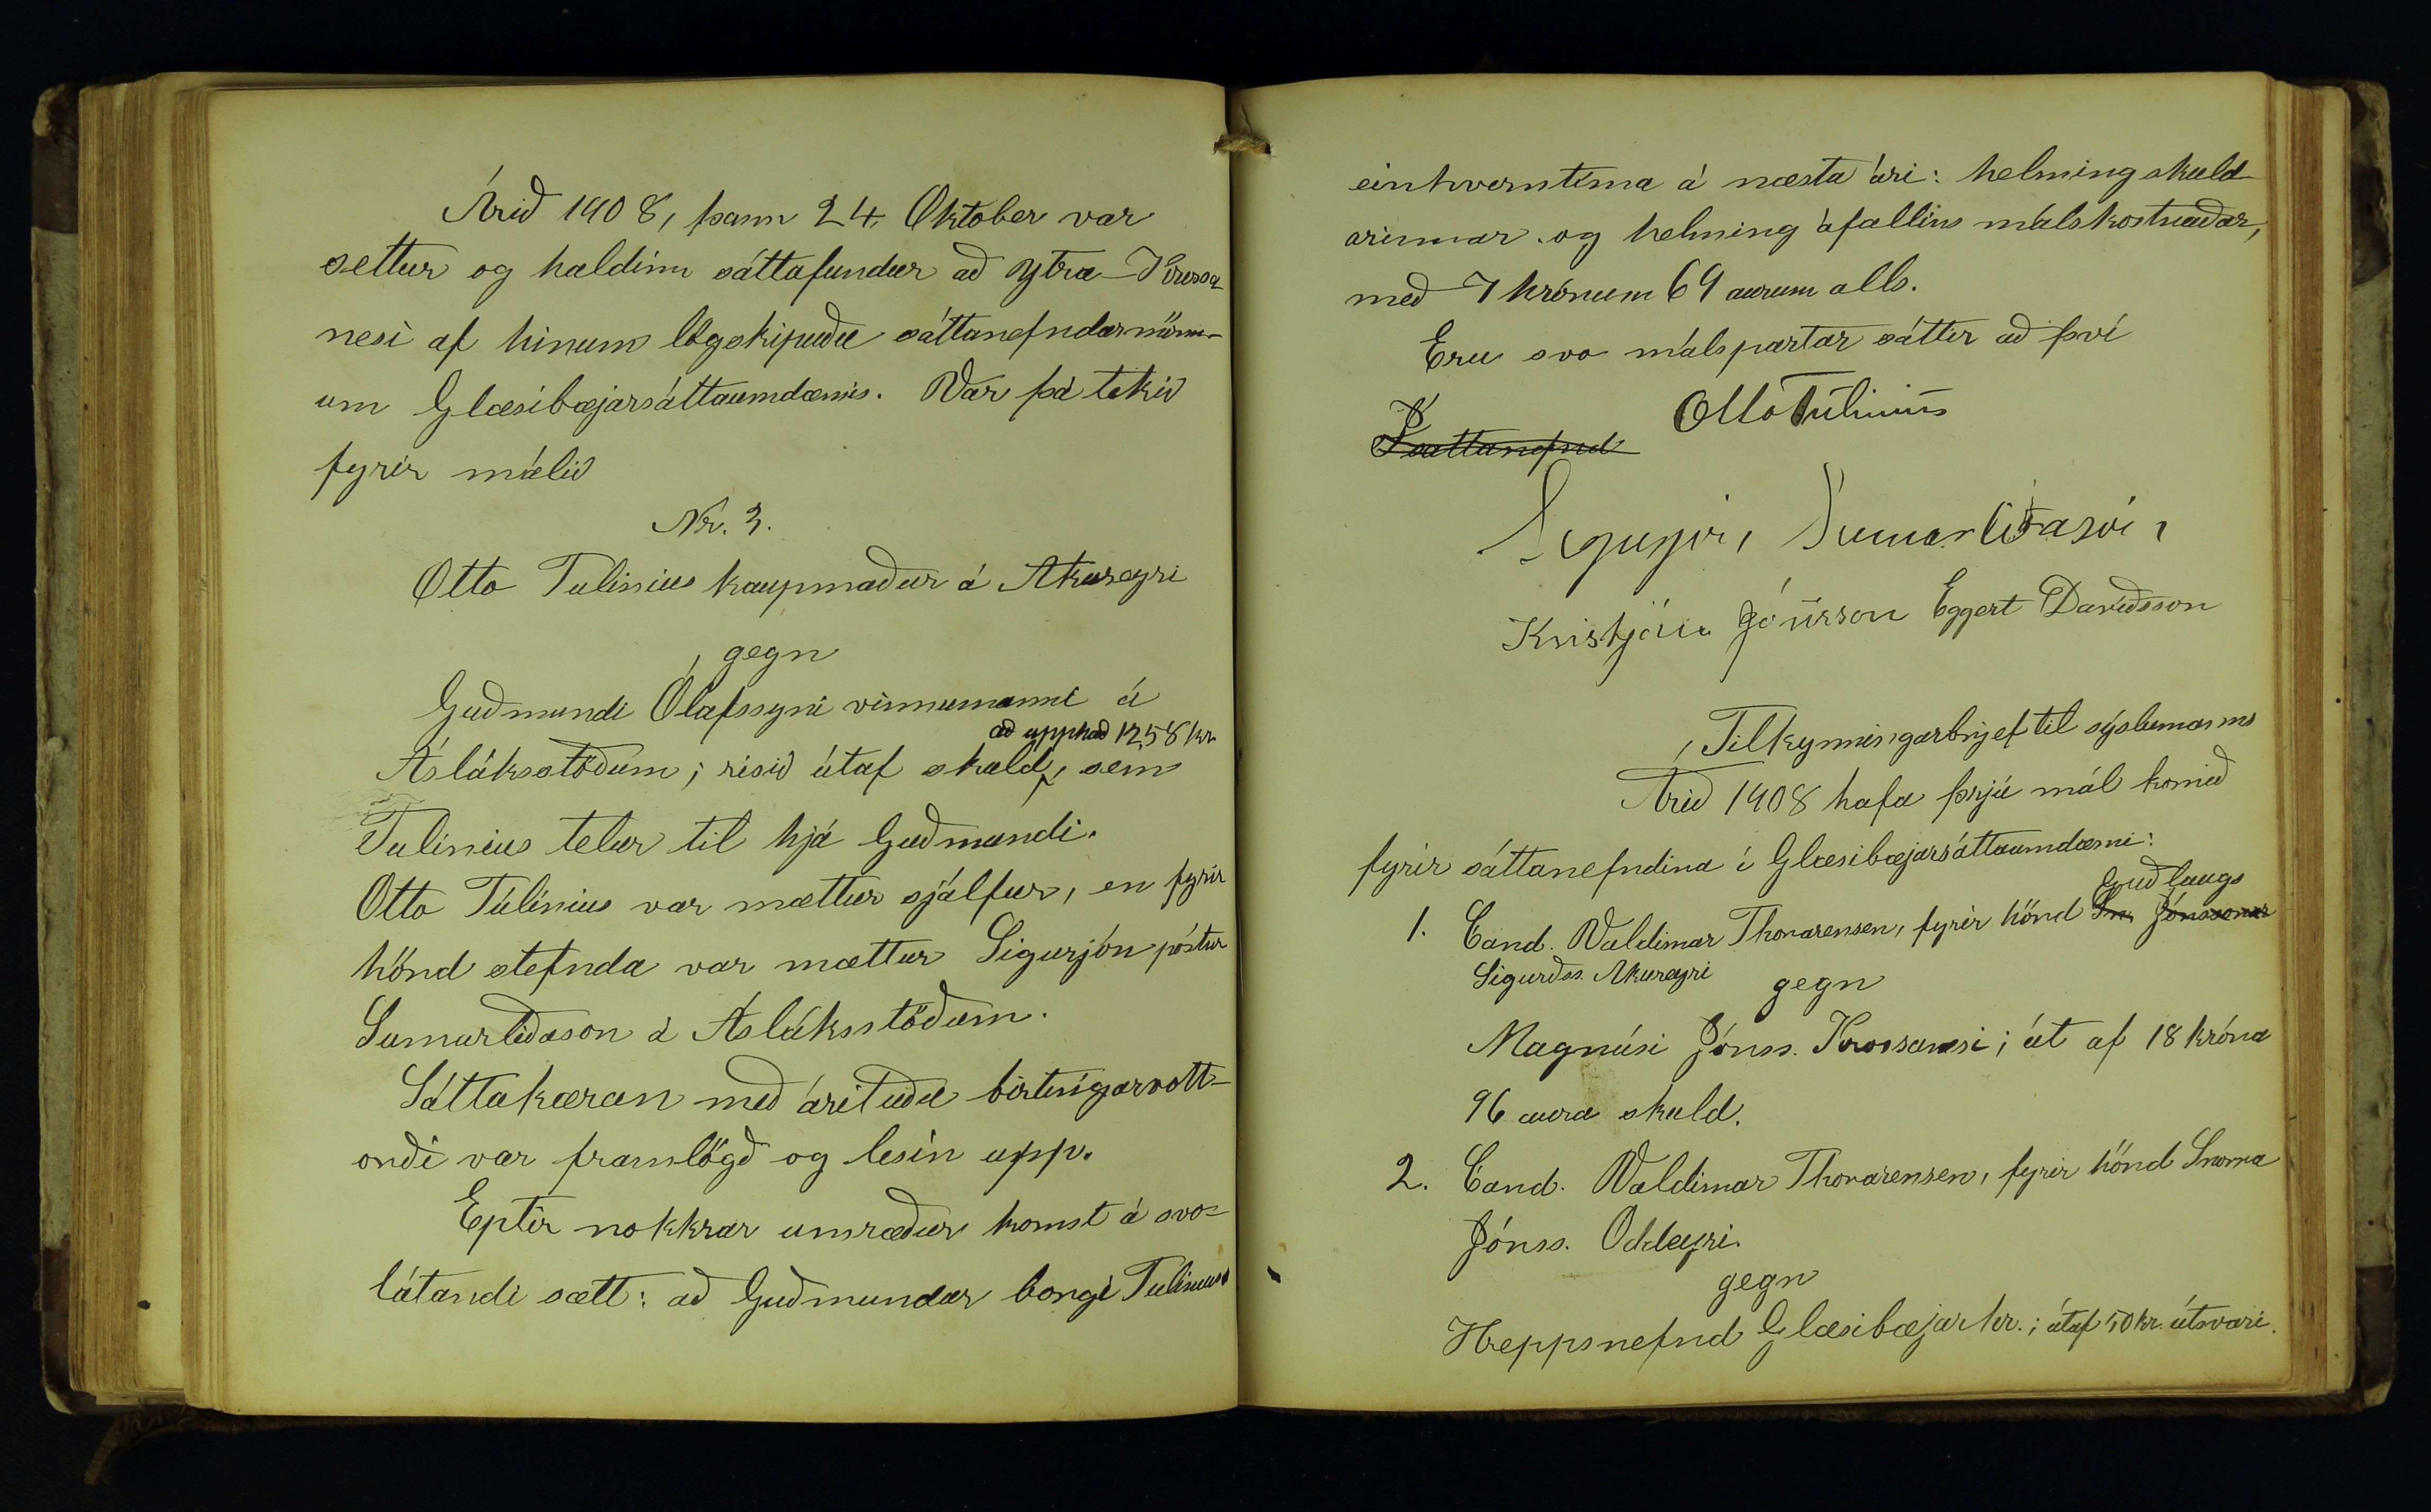 Árið 1908, þann 24. Oktober var
settur og haldinn sáttafundur að Ytra-Krossa
nesi af hinum lögskipuðu sáttanefndarmönn-
um Glæsibæjarsáttaumdæmis. Var þá tekið
fyrir málið
Nr. 3.
Otto Tulinius kaupmaður á Akureyri
gegn
Guðmundi Ólafssyni vinnumanni á
að upphæð 12,58 kr.
Ásláksstöðum; risið útaf skuld, sem
Tulinius telur til hjá Guðmundi.
Otto Túlinius var mættur sjálfur, en fyrir
hönd stefnda var mættur Sigurjón póstur
Sumarliðason á Ásláksstöðum.
Sáttakæran með árituðu birtingarvott-
orði var framlögð og lesin upp.
Eptir nokkrar umræður komst á svo-
látandi sætt: að Guðmundur borgi Tulinius
einhverntíma á næsta ári: helming skuld
arinnar og helming áfallins málskostnaðar,
með 7 krónum 69 aurum alls.
Eru svo málspartar sáttir að því
Otto Tulinius
Sáttanefnd
Sigurjón Sumarliðason
Kristján Jónsson Eggert Davíðsson
Tilkynningarbrjef til sýslumanns
Árið 1908 hafa þrjú mál komið
fyrir sáttanefndina í Glæsibæjarsáttaumdæmi:
Guðlaugs
1. Cand. Valdimar Thorarensen, fyrir hönd Sn. Jónssonar
Sigurðss. Akureyri
gegn
Magnúsi Jónss. Krossanesi; út af 18 króna
96 aura skuld.
2. Cand. Valdimar Thorarensen, fyrir hönd Snorra
Jónss. Oddeyri.
gegn
Hreppsnefnd Glæsibæjarhr.; útaf 50 kr. útsvari.